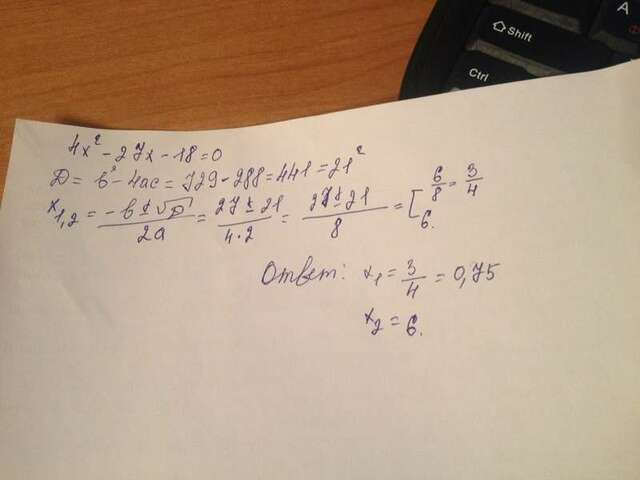 A
Shift
Ctrl
4x² - 27x - 18 = 0
D = b² - 4ac = 729 - 288 = 441 = 21²
x₁,₂ = (-b ± √D)/(2a) = (27 ± 21)/(4·2) = (27 ± 21)/8 = [ 6/8 = 3/4
6.
Ответ: x₁ = 3/4 = 0,75
x₂ = 6.